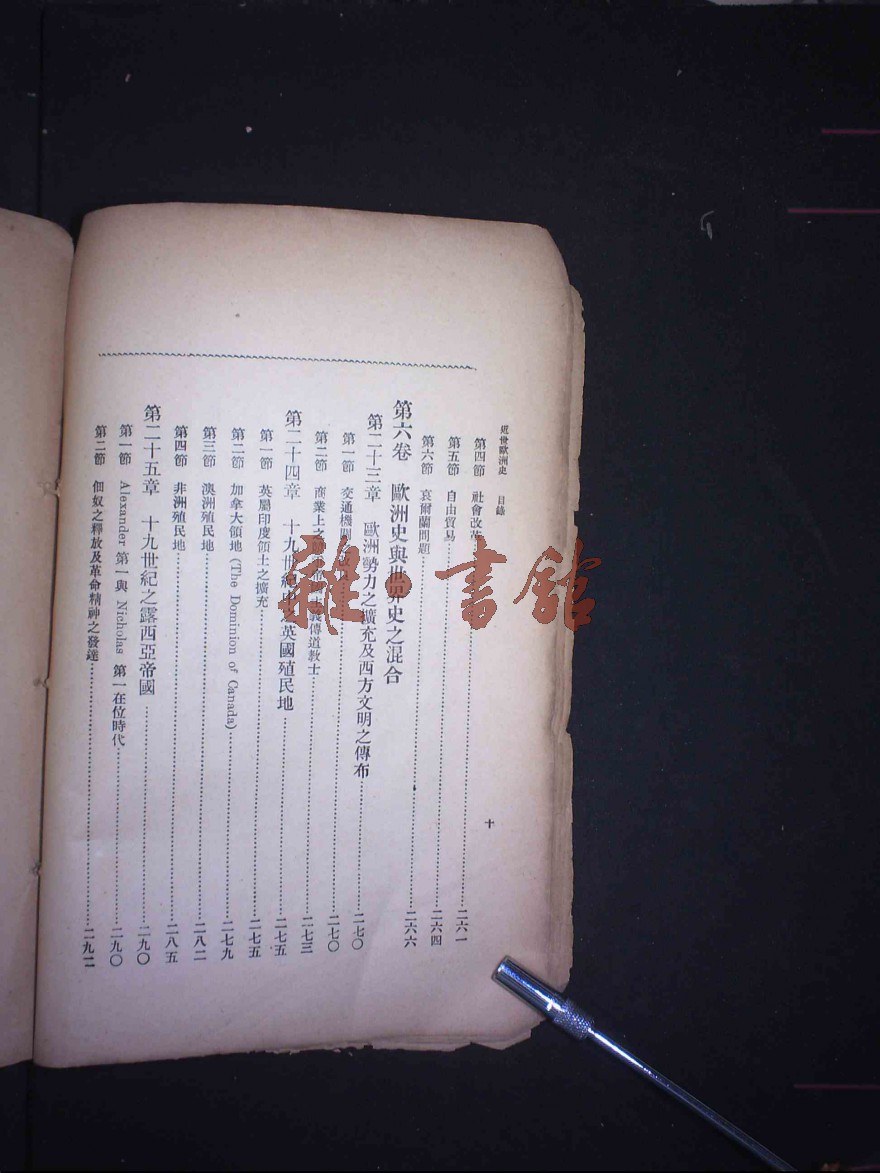 近世歐洲史 目錄 十
第四節 社會改革 二六一
第五節 自由貿易 二六四
第六節 哀爾蘭問題 二六六
第六卷 歐洲史與世界史之混合
第二十三章 歐洲勢力之擴充及西方文明之傳布 二七〇
第一節 交通機關之 二七〇
第二節 商業上之 傳道教士 二七三
第二十四章 十九世紀 英國殖民地 二七五
第一節 英屬印度領土之擴充 二七五
第二節 加拿大領地 (The Dominion of Canada) 二七九
第三節 澳洲殖民地 二八二
第四節 非洲殖民地 二八五
第二十五章 十九世紀之露西亞帝國 二九〇
第一節 Alexander 第一與 Nicholas 第一在位時代 二九〇
第二節 佃奴之釋放及革命精神之發達 二九二
雜·書館